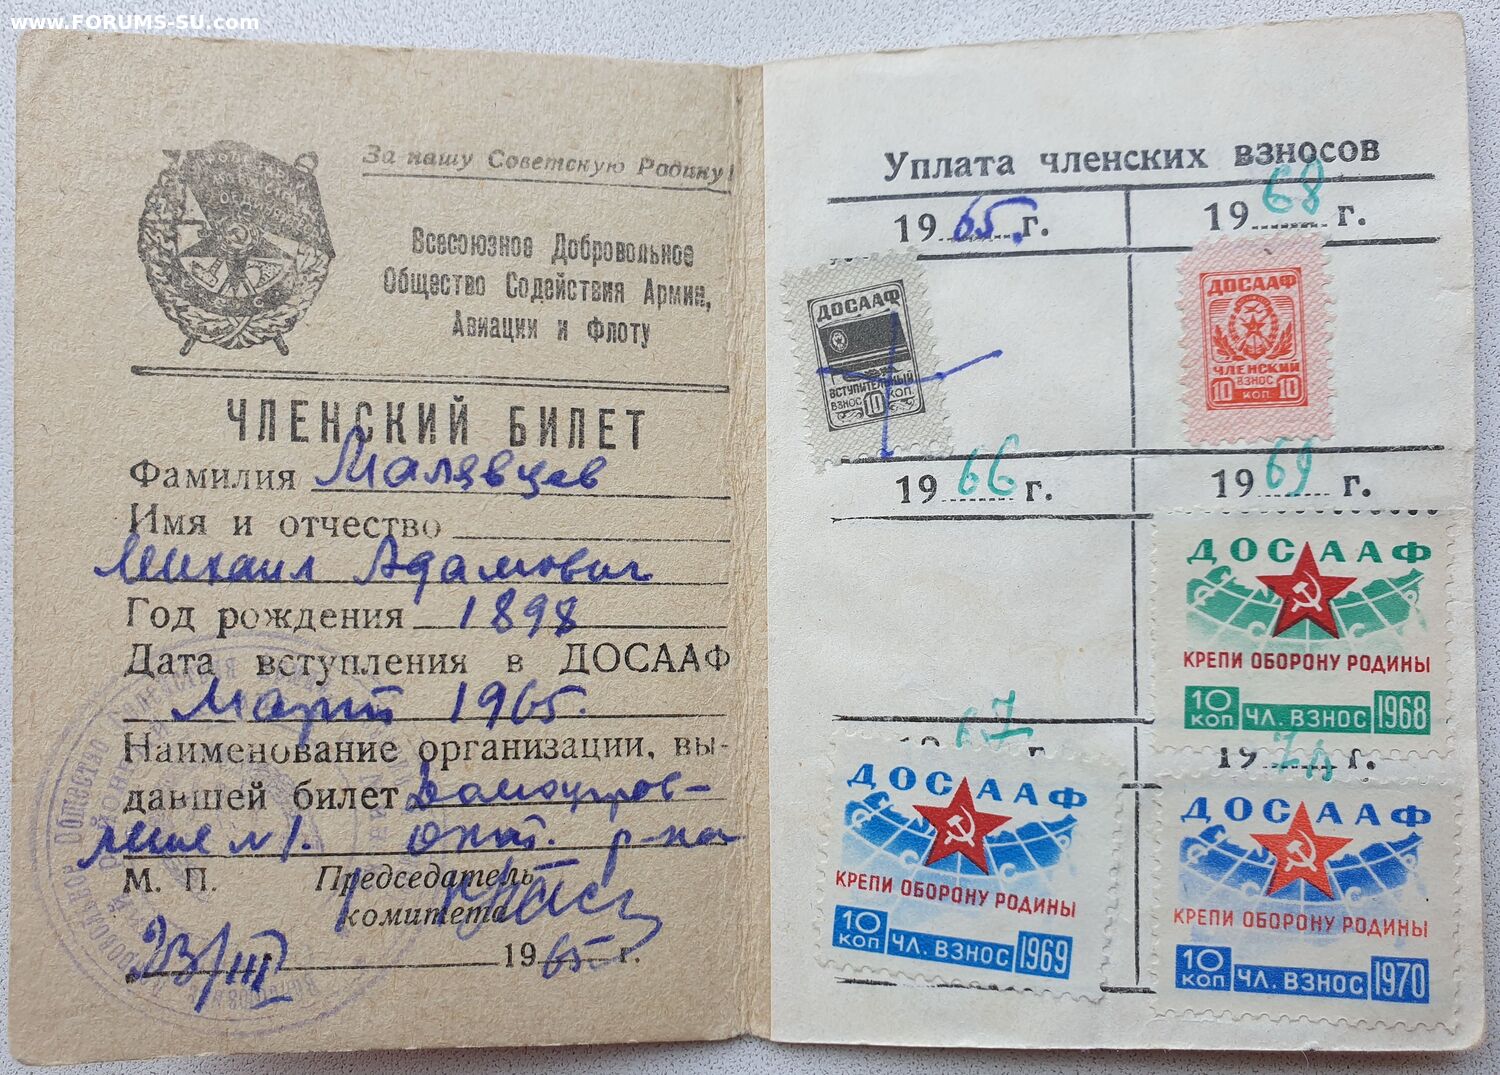 www.FORUMS-SU.com
За нашу Советскую Родину!
Всесоюзное Добровольное
Общество Содействия Армии,
Авиации и Флоту
ЧЛЕНСКИЙ БИЛЕТ
Фамилия Малявцев
Имя и отчество
Михаил Адамович
Год рождения 1898
Дата вступления в ДОСААФ
Март 1965.
Наименование организации, вы-
давшей билет Домоуправ-
ление №1. окт. р-на
М. П. Председатель
комитета
23/III 1965 г.
Уплата членских взносов
1965 г. 1968 г.
ДОСААФ
ВСТУПИТЕЛЬНЫЙ
ВЗНОС 10 КОП.
ДОСААФ
ЧЛЕНСКИЙ
ВЗНОС
10 КОП 10
1966 г. 1969 г.
ДОСААФ
КРЕПИ ОБОРОНУ РОДИНЫ
10 КОП ЧЛ. ВЗНОС 1968
1967 г. 1970 г.
ДОСААФ
КРЕПИ ОБОРОНУ РОДИНЫ
10 КОП ЧЛ. ВЗНОС 1969
ДОСААФ
КРЕПИ ОБОРОНУ РОДИНЫ
10 КОП ЧЛ. ВЗНОС 1970